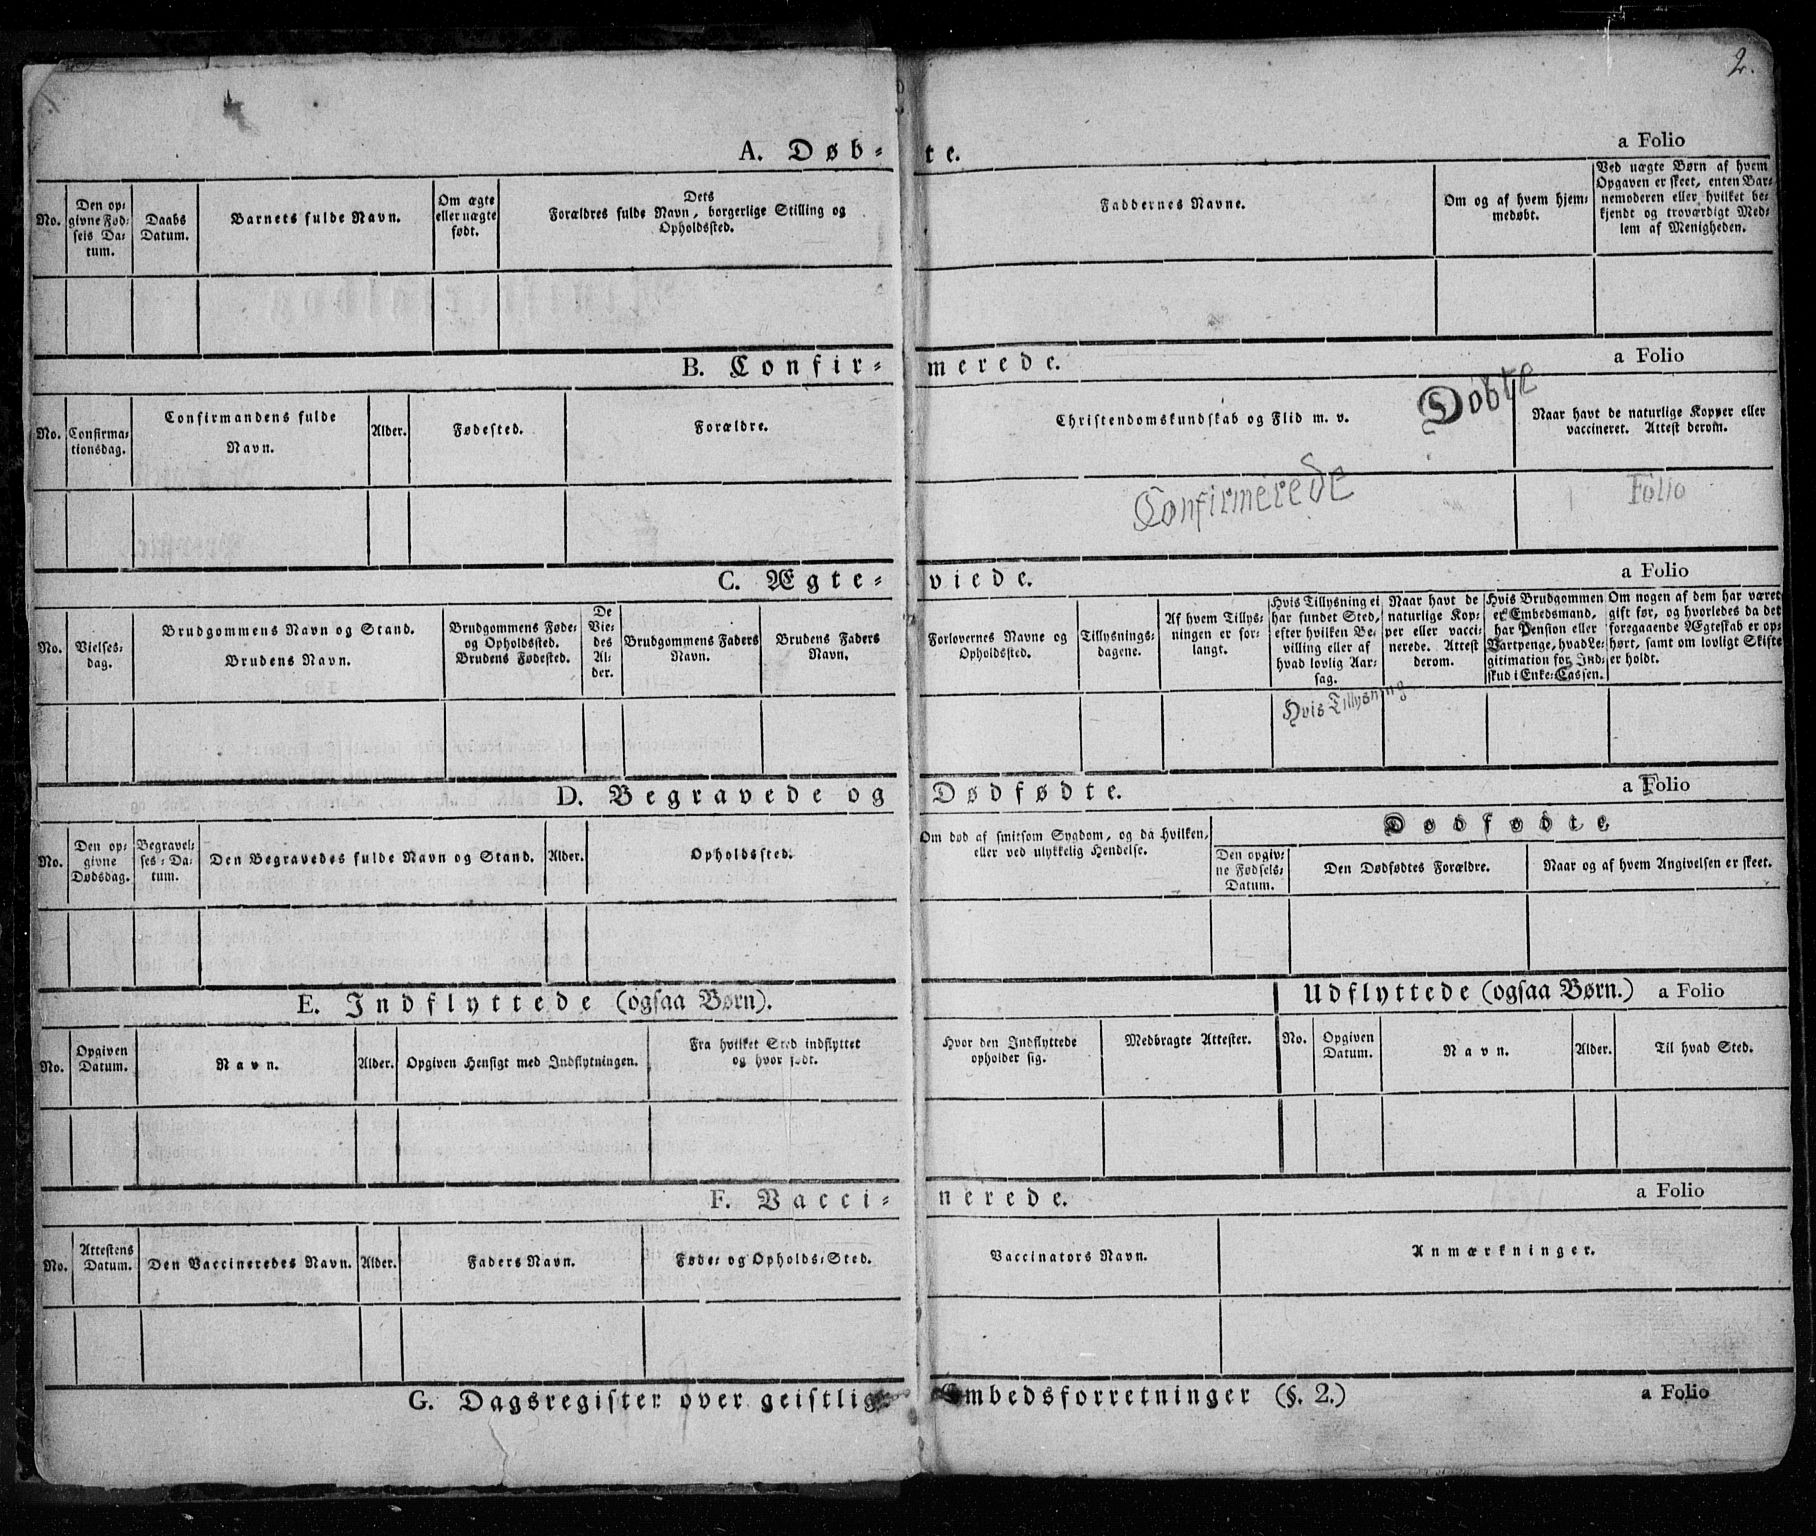 2.
A. Døb- te. a Folio
No.
Den op-
givne Fød-
sels Da-
tum.
Daabs
Datum.
Barnets fulde Navn.
Om ægte
eller uægte
født.
Dets
Forældres fulde Navn, borgerlige Stilling og
Opholdssted.
Faddernes Navne.
Om og af hvem hjem-
medøbt.
Ved uægte Børn af hvem
Opgaven er skeet, enten Bar-
nemoderen eller hvilket be-
kjendt og troværdigt Med-
lem af Menigheden.
B. Confir- merede. a Folio
No.
Confirma-
tionsdag.
Confirmandens fulde
Navn.
Alder.
Fødested.
Forældre.
Christendomskundskab og Flid m. v.
Døbte
Naar havt de naturlige Kopper eller
vaccineret. Attest derom.
Confirmerede
Folio
C. Ægte- viede. a Folio
No.
Vielses-
dag.
Brudgommens Navn og Stand.
Brudens Navn.
Brudgommens Føde-
og Opholdssted.
Brudens Fødested.
De
Vie-
des
Al-
der.
Brudgommens Faders
Navn.
Brudens Faders
Navn.
Forlovernes Navne og
Opholdssted.
Tillysnings-
dagene.
Af hvem Tillys-
ningen er for-
langt.
Hvis Tillysning ei
har fundet Sted,
efter hvilken Be-
villing eller af
hvad lovlig Aar-
sag.
Naar havt de
naturlige Kop-
per eller vacci-
nerede. Attest
derom.
Hvis Brudgommen
er Embedsmand,
har Pension eller
Vartpenge, hvad Le-
gitimation for Ind-
skud i Enke-Cassen.
Om nogen af dem har været
gift før, og hvorledes da det
foregaaende Ægteskab er op-
hørt, samt om lovligt Skifte
er holdt.
Hvis Tillysning
D. Begravede og Dødfødte. a Folio
No.
Den op-
givne
Dødsdag.
Begravel-
ses-Da-
tum.
Den Begravedes fulde Navn og Stand.
Alder.
Opholdssted.
Om død af smitsom Sygdom, og da hvilken,
eller ved ulykkelig Hendelse.
Dødfødte
Den opgiv-
ne Fødsels-
Datum.
Den Dødfødtes Forældre.
Naar og af hvem Angivelsen er skeet.
E. Indflyttede (ogsaa Børn). Udflyttede (ogsaa Børn.) a Folio
No.
Opgiven
Datum.
Navn.
Alder.
Opgiven Hensigt med Indflytningen.
Fra hvilket Sted indflyttet
og hvor født.
Hvor den Indflyttede
opholder sig.
Medbragte Attester.
No.
Opgiven
Datum.
Navn.
Alder.
Til hvad Sted.
F. Vacci- nerede. a Folio
No.
Attestens
Datum.
Den Vaccineredes Navn.
Alder.
Faders Navn.
Føde- og Opholds-Sted.
Vaccinators Navn.
Anmærkninger.
G. Dagsregister over geistlige Embedsforretninger (§. 2.) a Folio